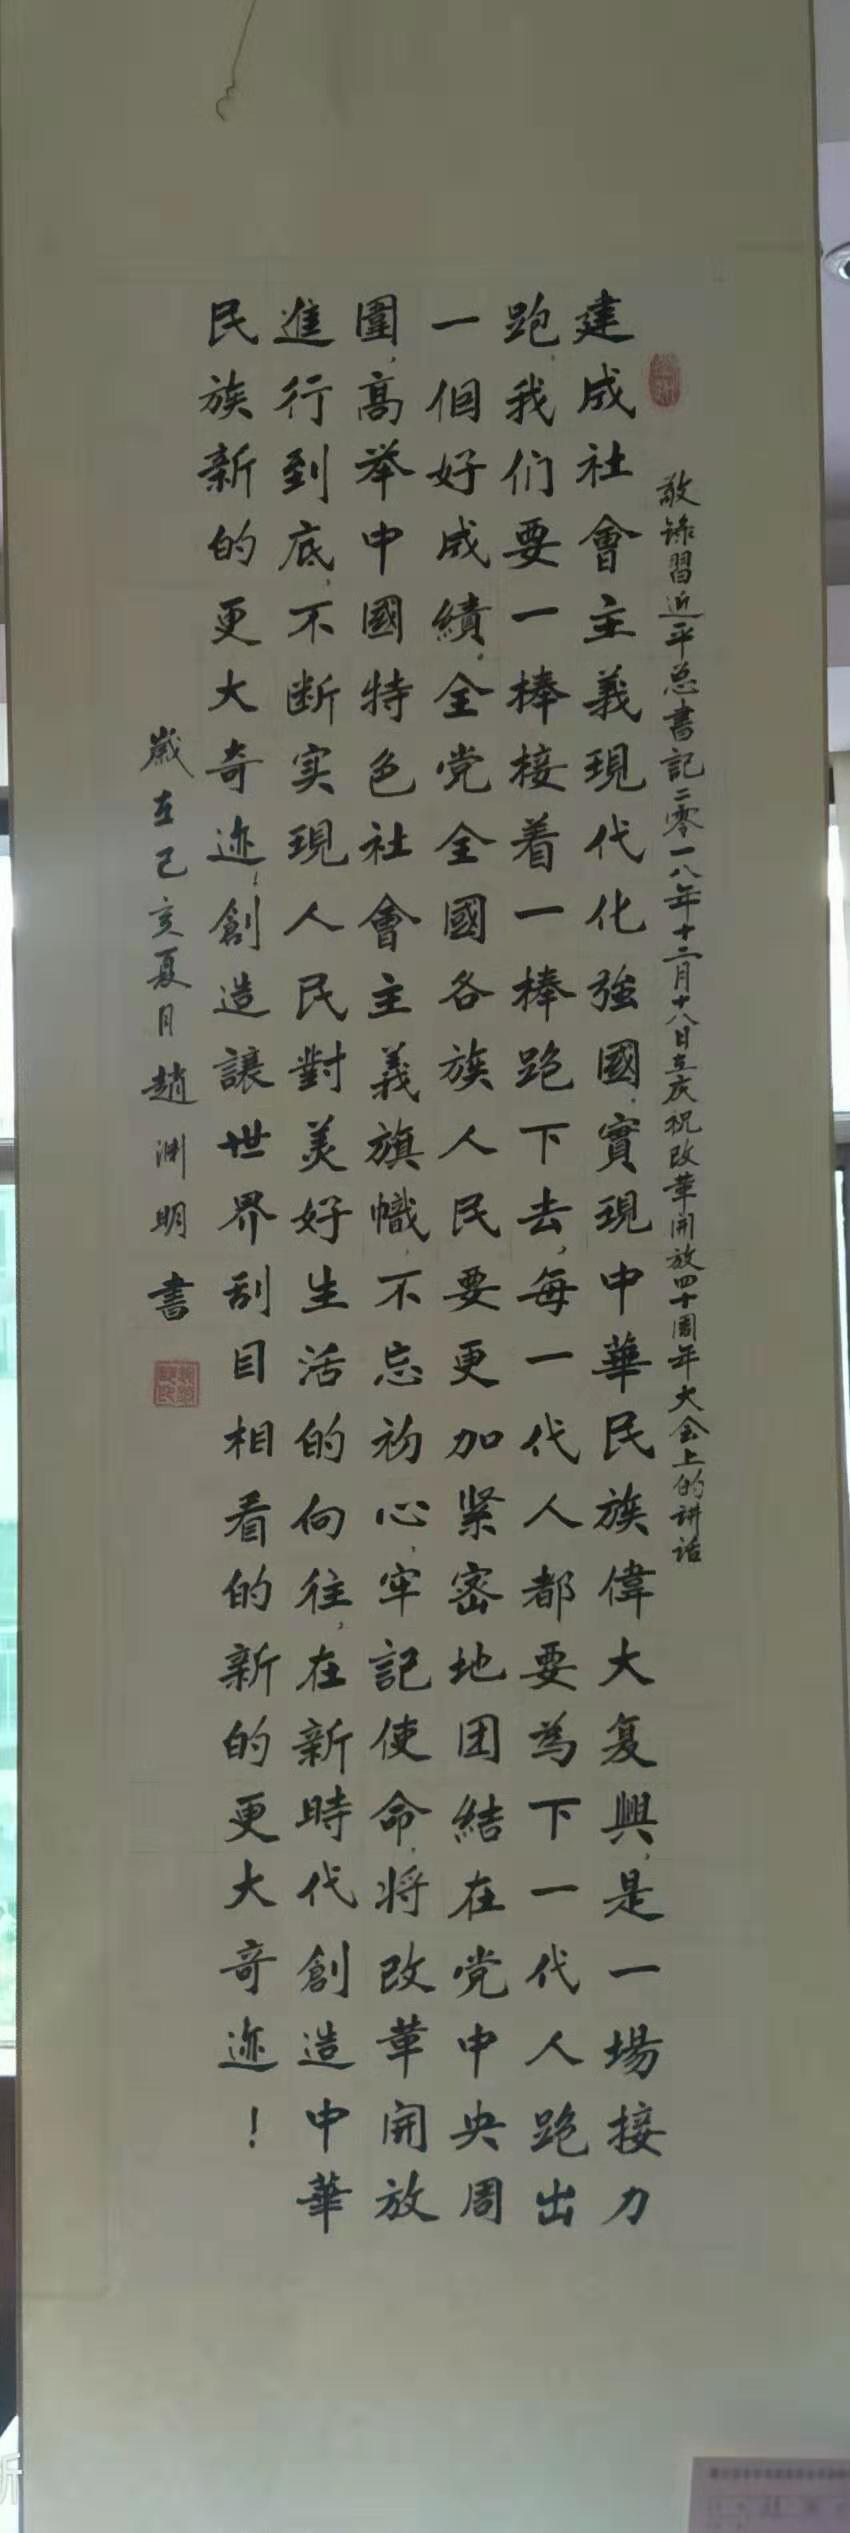 敬錄習近平总書記二零一八年十二月十八日在庆祝改革開放四十周年大会上的讲话
建成社會主義現代化強國,實現中華民族偉大复興,是一場接力
跑,我们要一棒接着一棒跑下去,每一代人都要為下一代人跑出
一個好成績,全党全國各族人民要更加紧密地团結在党中央周
圍,高举中國特色社會主義旗幟,不忘初心,牢記使命,将改革開放
進行到底,不断实現人民對美好生活的向往,在新時代創造中華
民族新的更大奇迹!創造讓世界刮目相看的新的更大奇迹!
嵗在己亥夏月趙渊明書